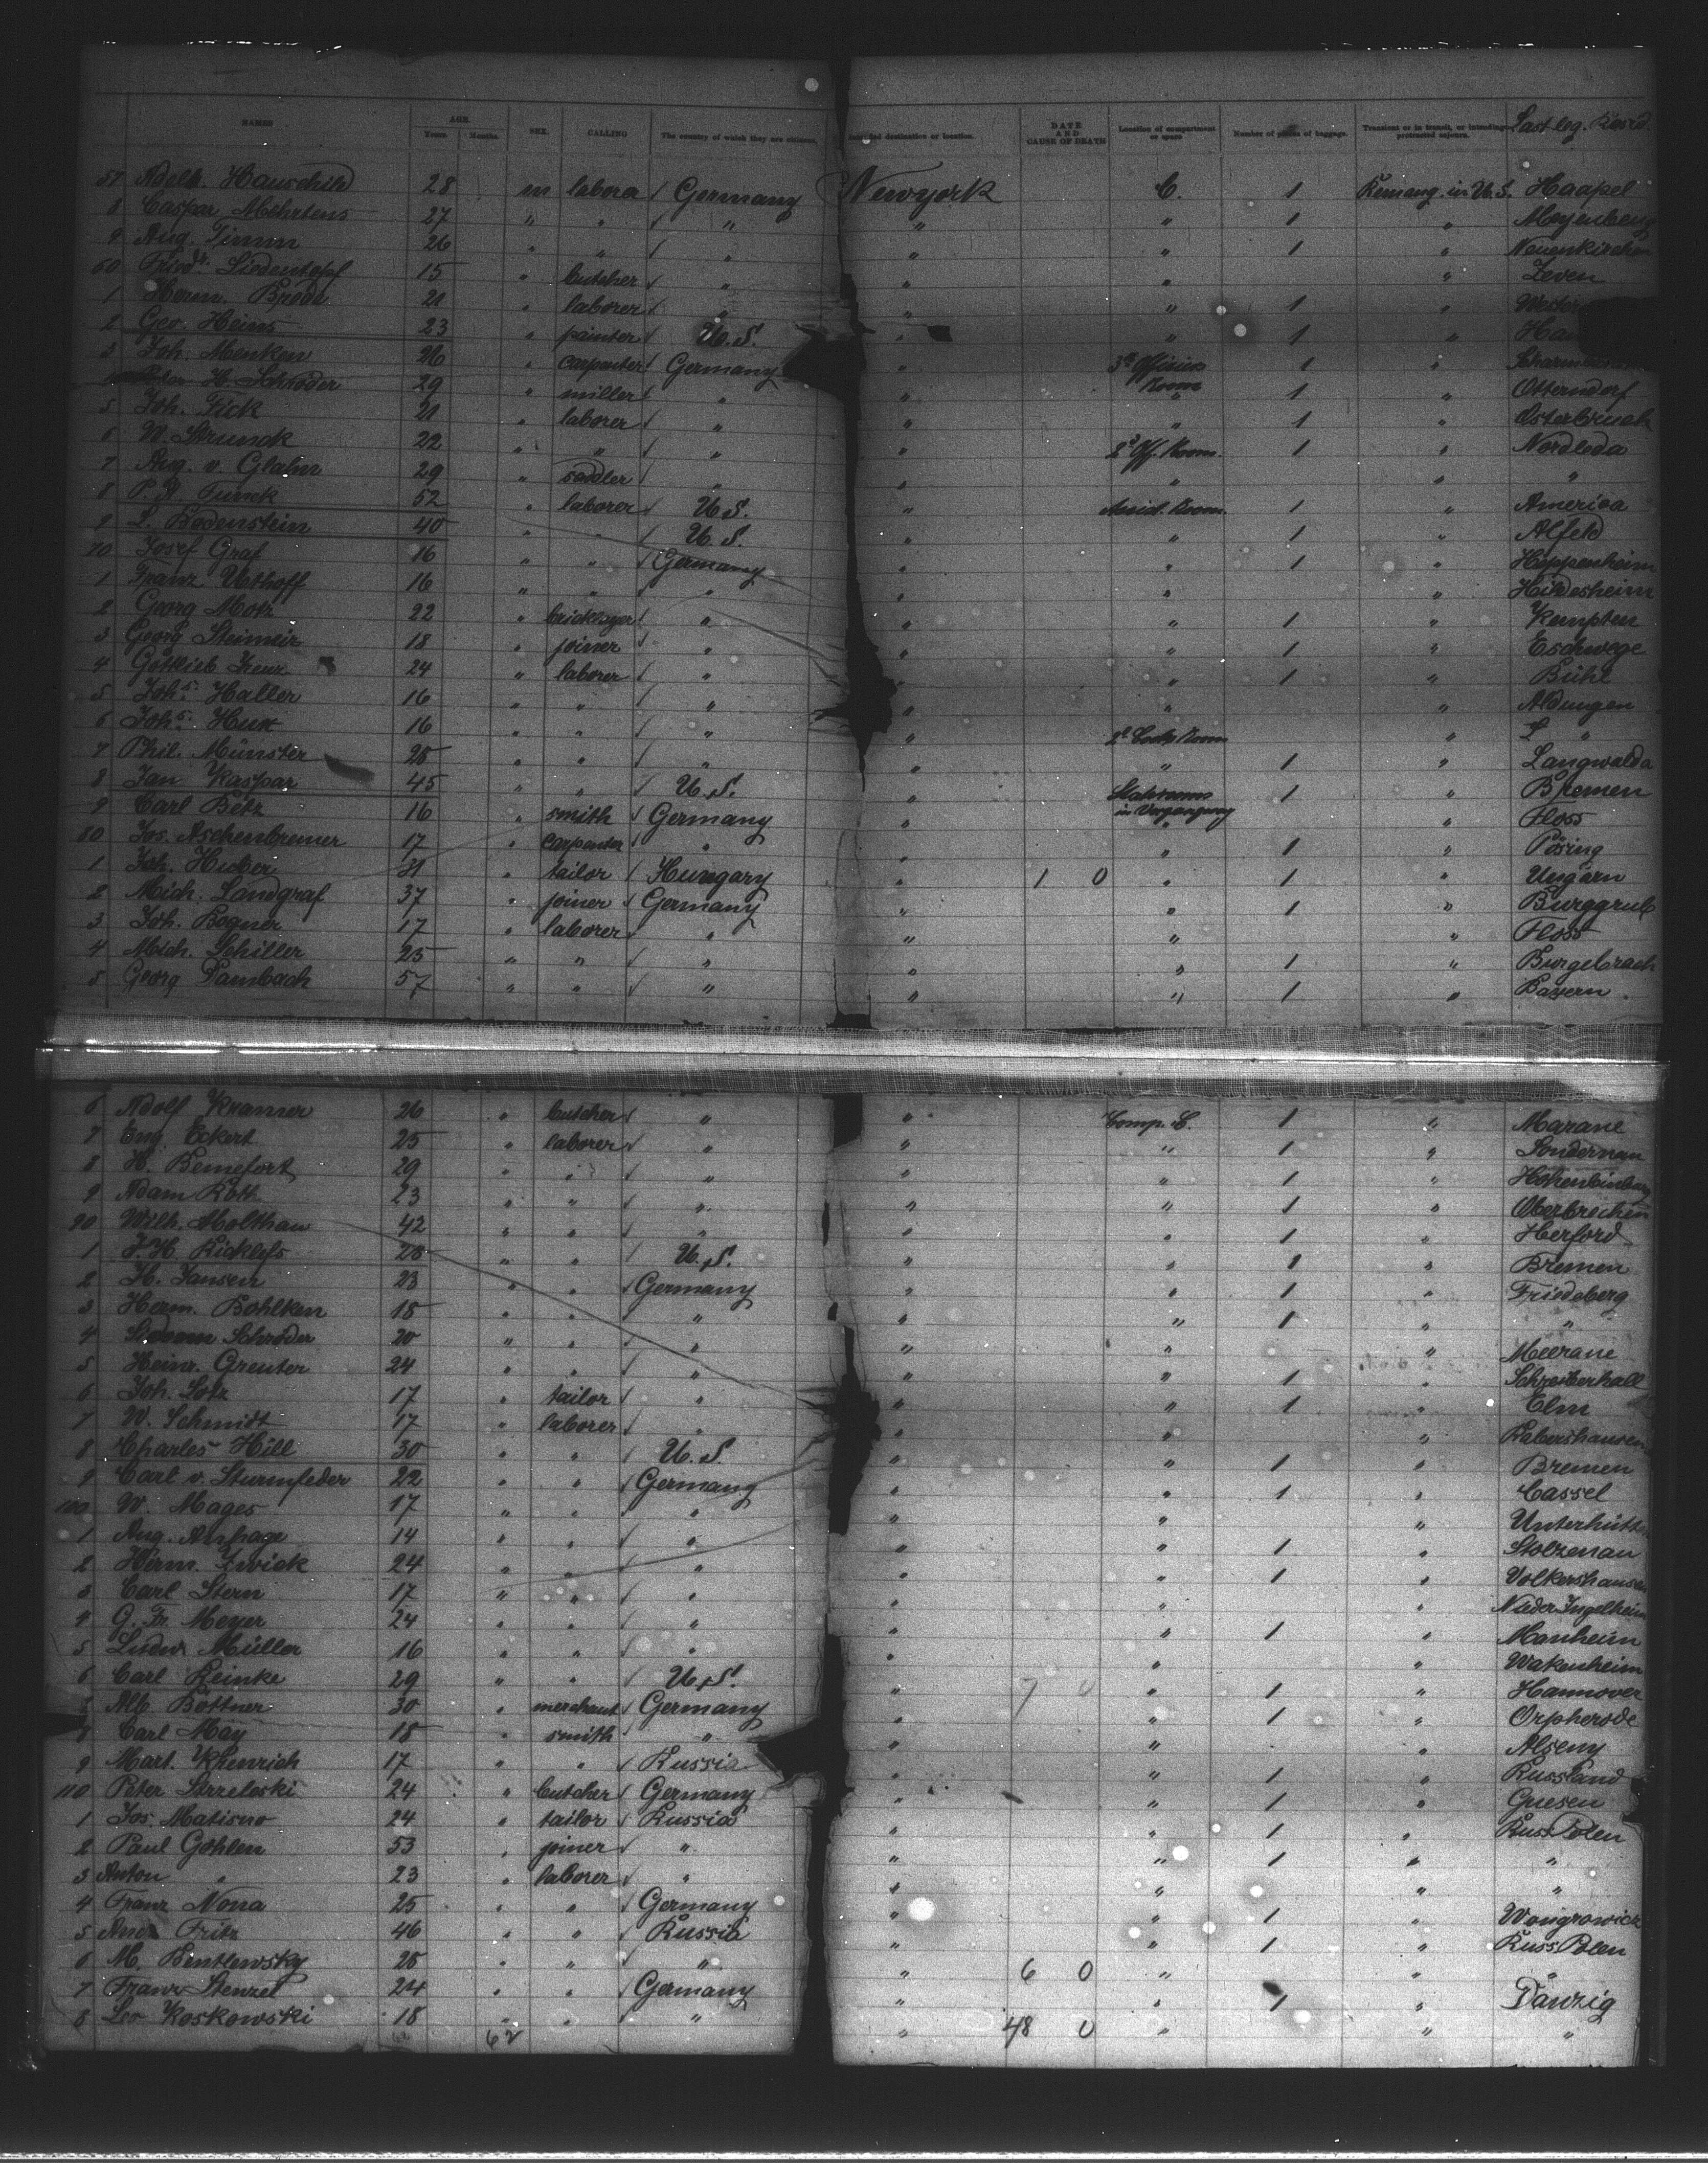 NAMES AGE. Years. Months. SEX. CALLING The country of which they are citizens. Intended destination or location. DATE AND CAUSE OF DEATH Location of compartment or space Number of pieces of baggage. Transient or in transit, or intending protracted sojourn. Last leg. Resid.
57 Adelb. Hauschild 28 m laborer / Germany Newyork C. 1 Remang. in U.S. Haapel
8 Caspar Mehrtens 27 " " / " " " 1 " Meyenburg
9 Aug. Timm 26 " " / " " " 1 " Neuenkirchen
60 Friedr. Siedentopf 15 " butcher / " " " " Zeven
1 Herm. Brode 21 " laborer / " " " 1
2 Geo. Heins 23 " painter / U.S. " " 1 "
3 Joh. Menken 26 " carpenter / Germany " 3d Officier Room 1 "
H. Schröder 29 " miller / " " " 1 " Otterndorf
5 Joh. Fick 21 " laborer / " " " 1 " Osterbruch
6 W. Strunck 22 " " / " " 2d Off. Room. 1 " Nordleda
7 Aug. v. Glahn 29 " saddler / " " " " "
8 P. A. Funck 52 " laborer / U.S. " Room. 1 " America
9 L. Bodenstein 40 " " / U.S. " " 1 " Alfeld
70 Josef Graf 16 " " / Germany " " 1 " Heppenheim
1 Franz Uthoff 16 " " / " " " " Hildesheim
2 Georg Motz 22 " bricklayer / " " " 1 " Kempten
3 Georg Steimeir 18 " joiner / " " " 1 " Eschwege
4 Gottlieb 24 " laborer / " " " 1 " Bühl
5 Johs. Haller 16 " " / " " " " Aldungen
6 Johs. 16 " " / " " 2d Cook Room " "
7 Phil. Münster 25 " " / " " " 1 " Langwalda
8 Jan Kaspar 45 " " / U.S. " 1 " Bremen
9 Carl Betz 16 " smith / Germany " " " Floss
80 Jos. Aschenbrenner 17 " carpenter / " " " 1 " Pösing
1 Joh. Huber 31 " tailor / Hungary " 1 0 " 1 " Ungarn
2 Mich. Landgraf 37 " joiner / Germany " " 1 " Burggrub
3 Joh. Bogner 17 " laborer / " " " " Floss
4 Mich. Schiller 25 " " / " " " 1 " Burgebrach
5 Georg Dambach 57 " " / " " " 1 " Bayern
6 Adolf Kramer 26 " butcher / " " Comp. C. 1 " Marane
7 Eug. Eckert 25 " laborer / " " " 1 " Sondernau
8 H. Bennefort 29 " " / " " " 1 "
9 Adam Roth 23 " " / " " " 1 " Oberbrechen
90 Wilh. Molthan 42 " " / " " " 1 " Herford
1 J. H. Ricklefs 28 " " / U.S. " " 1 " Bremen
2 H. Jansen 23 " " / Germany " " 1 " Friedeberg
3 Herm. Bohlken 18 " " / " " " 1 " "
4 Schröder 20 " " / " " " " Meerane
5 Heinr. Greuter 24 " " / " " " 1 "
6 Joh. Lotz 17 " tailor / " " " 1 " Elm
7 W. Schmidt 17 " laborer / " " " " Rabershausen
8 Charles Hill 30 " " / U.S. " " 1 " Bremen
9 Carl v. Sturmfeder 22 " " / Germany " " 1 " Cassel
100 W. Mages 17 " " / " " " " Unterhütte
1 Aug. 14 " " / " " " 1 " Stolzenau
2 Herm. Zwick 24 " " / " " " 1 " Volkershausen
3 Carl Stern 17 " " / " " " " Nieder Ingelheim
4 G. Fr. Meyer 24 " " / " " " 1 " Manheim
5 Ludw. Müller 16 " " / " " " " Wakenheim
6 Carl Reinke 29 " " / U.S. " 7 0 " 1 " Hannover
7 Alb. Bottner 30 " merchant / Germany " " 1 "
8 Carl May 18 " smith / " " " " Alseny
9 Mart. 17 " " / Russia " " 1 " Russland
110 Peter Strzeleski 24 " butcher / Germany " " 1 " Gnesen
1 Jos. 24 " tailor / Russia " " 1 " Russ. Polen
2 Paul Gohlen 53 " joiner / " " " 1 " "
3 Anton " 23 " laborer / " " " " "
4 Franz Nona 25 " " / Germany " " 1 " Wongrowicz
5 Fritz 46 " " / Russia " " 1 " Russ. Polen
6 M. 25 " " / " " 6 0 " " "
7 Franz Stenzel 24 " " / Germany " " 1 " Danzig
8 Leo Koskowski 18 " " / " " 48 0 " " "
62